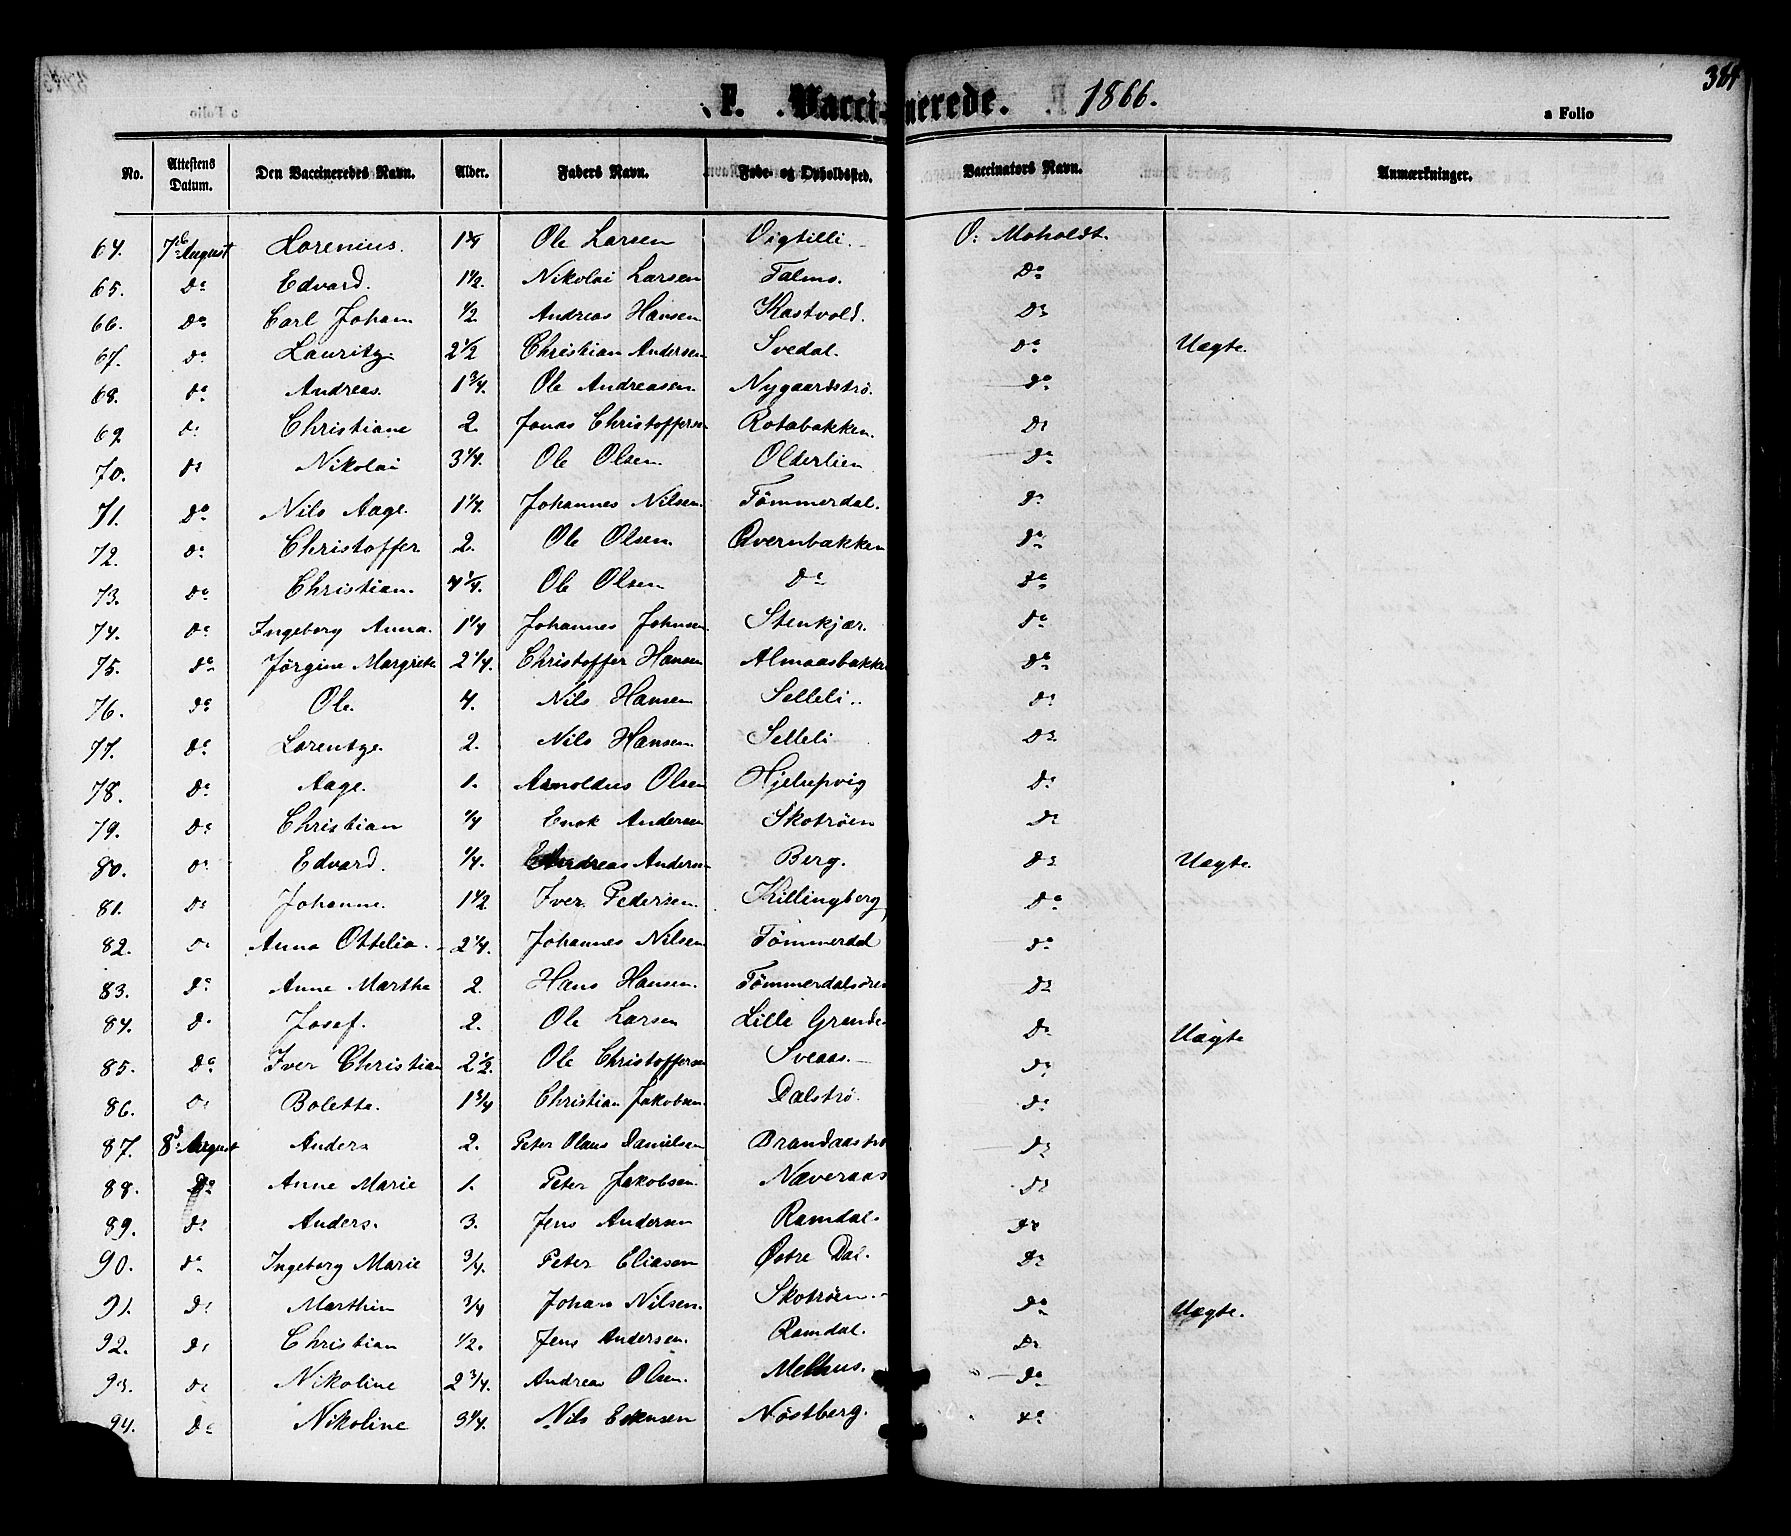 F. Vaccinerede. 1866.
a Folio
No. Attestens Datum. Den Vaccineredes Navn. Alder. Faders Navn. Føde- og Opholdssted. Vaccinators Navn. Anmærkninger.
64. 7de August Lorenius. 1¼ Ole Larsen Vigtilli. O: Moholdt.
65. Do Edvard. 1½. Nikolai Larsen Falmo. Do
66. Do Carl Johan ½ Andreas Hansen Kastvold. Do
67. Do Lauritz 2½ Christian Andersen Svedal. Do Uægte.
68. Do Andreas. 1¾. Ole Andreasen. Nygaardstrø. Do
69 Do Christiane 2. Jonas Christoffersen Rotabakken. Do
70. Do Nikolai 3¼. Ole Olsen. Olderlien Do
71. Do Nils Aage. 1¼. Johannes Nilsen. Tømmerdal. Do
72. Do Christoffer 2. Ole Olsen. Qvernbakken Do
73. Do Christian. 4¼. Ole Olsen Do Do
74. Do Ingeborg Anna. 1¼ Johannes Johnsen. Stenkjær. Do
75. Do Jørgine Margrete 2¼. Christoffer Hansen Almaasbakken Do
76. Do Ole. 4. Nils Hansen Selleli.. Do
77. Do Lorentze. 2. Nils Hansen. Selleli Do
78. Do Aage. 1. Arnoldus Olsen Hjelupvig Do
79. Do Christian ¼ Enok Andersen Skotrøen Do
80. Do Edvard. ¼. Andreas Andersen Berg. Do Uægte.
81. Do Johanne. 1½ Iver Pedersen. Killingberg Do
82. Do Anna Ottelia. 2¼. Johannes Nilsen Tømmerdal Do
83. Do Anne Martha 2. Hans Hansen. Tømmerdalsøren Do
84. Do Josef. 2. Ole Larsen Lille Grande Do Uægte
85. Do Iver Christian 2½. Ole Christoffersen Sveaas. Do
86. Do Bolette. 1¾ Christian Jakobsen. Dalstrø. Do
87. 8d August Anders 2. Peter Olaus Danielsen Brandaastrø Do
88. Do Anne Marie 1. Peter Jakobsen. Næveraas Do
89. Do Anders. 3. Jens Andersen Ramdal. Do
90. Do Ingeborg Marie ¾. Peter Eliasen Østre Dal. Do
91. Do Marthin ¾ Johan Nilsen. Skotrøen. Do Uægte.
92. Do Christian ½. Jens Andersen. Ramdal. Do
93. Do Nikoline 2¾. Andreas Olsen. Melhus. Do
94. Do Nikoline 3¼. Nils Estensen Nøstberg. Do